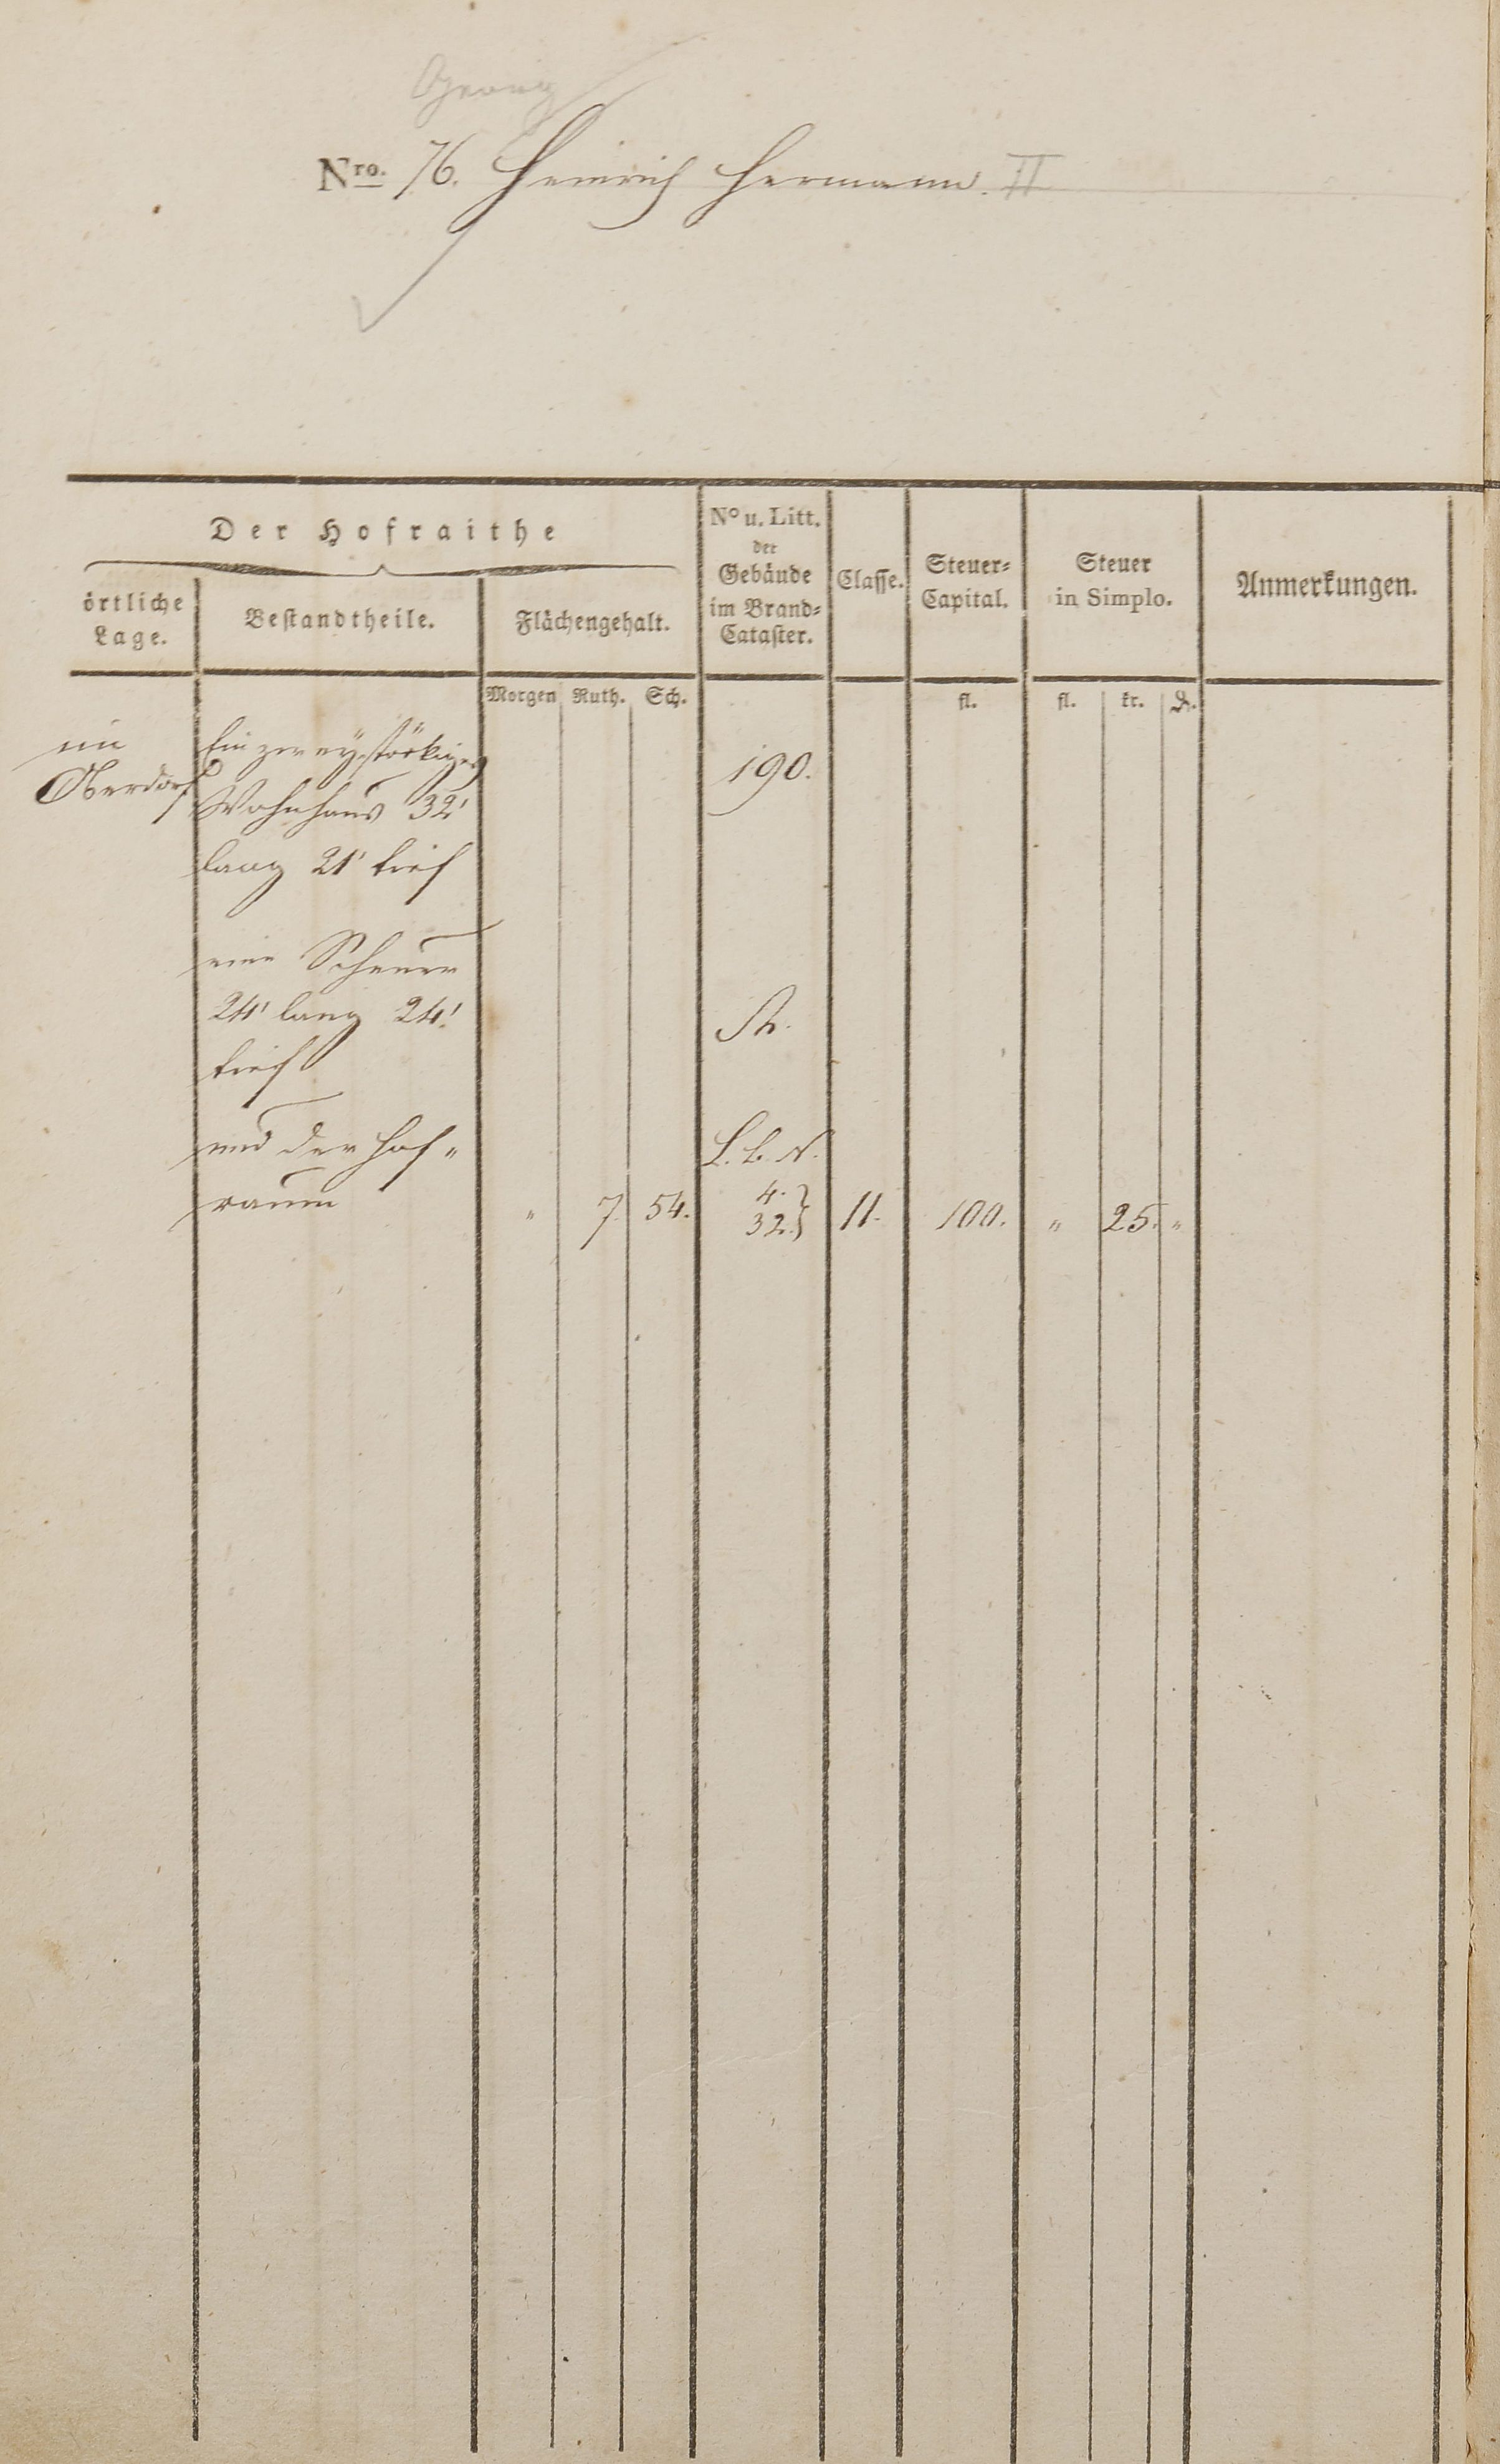 Georg
Nro. 76. Heinrich Hermann. II
Der Hofraithe
örtliche Lage.
Bestandtheile.
Flächengehalt.
No u. Litt. der Gebäude im Brand-Cataster.
Classe.
Steuer-Capital.
Steuer in Simplo.
Anmerkungen.
Morgen Ruth. Sch. fl. fl. kr. ₰.
im Ein zweystöckiges
Oberdorf Wohnhaus 32' 190.
lang 21' tief
eine Scheuer
24' lang 24' St.
tief
und der Hof„ L. b. N.
raum „ 7. 54. 4. 32.} 11. 100. „ 25. „